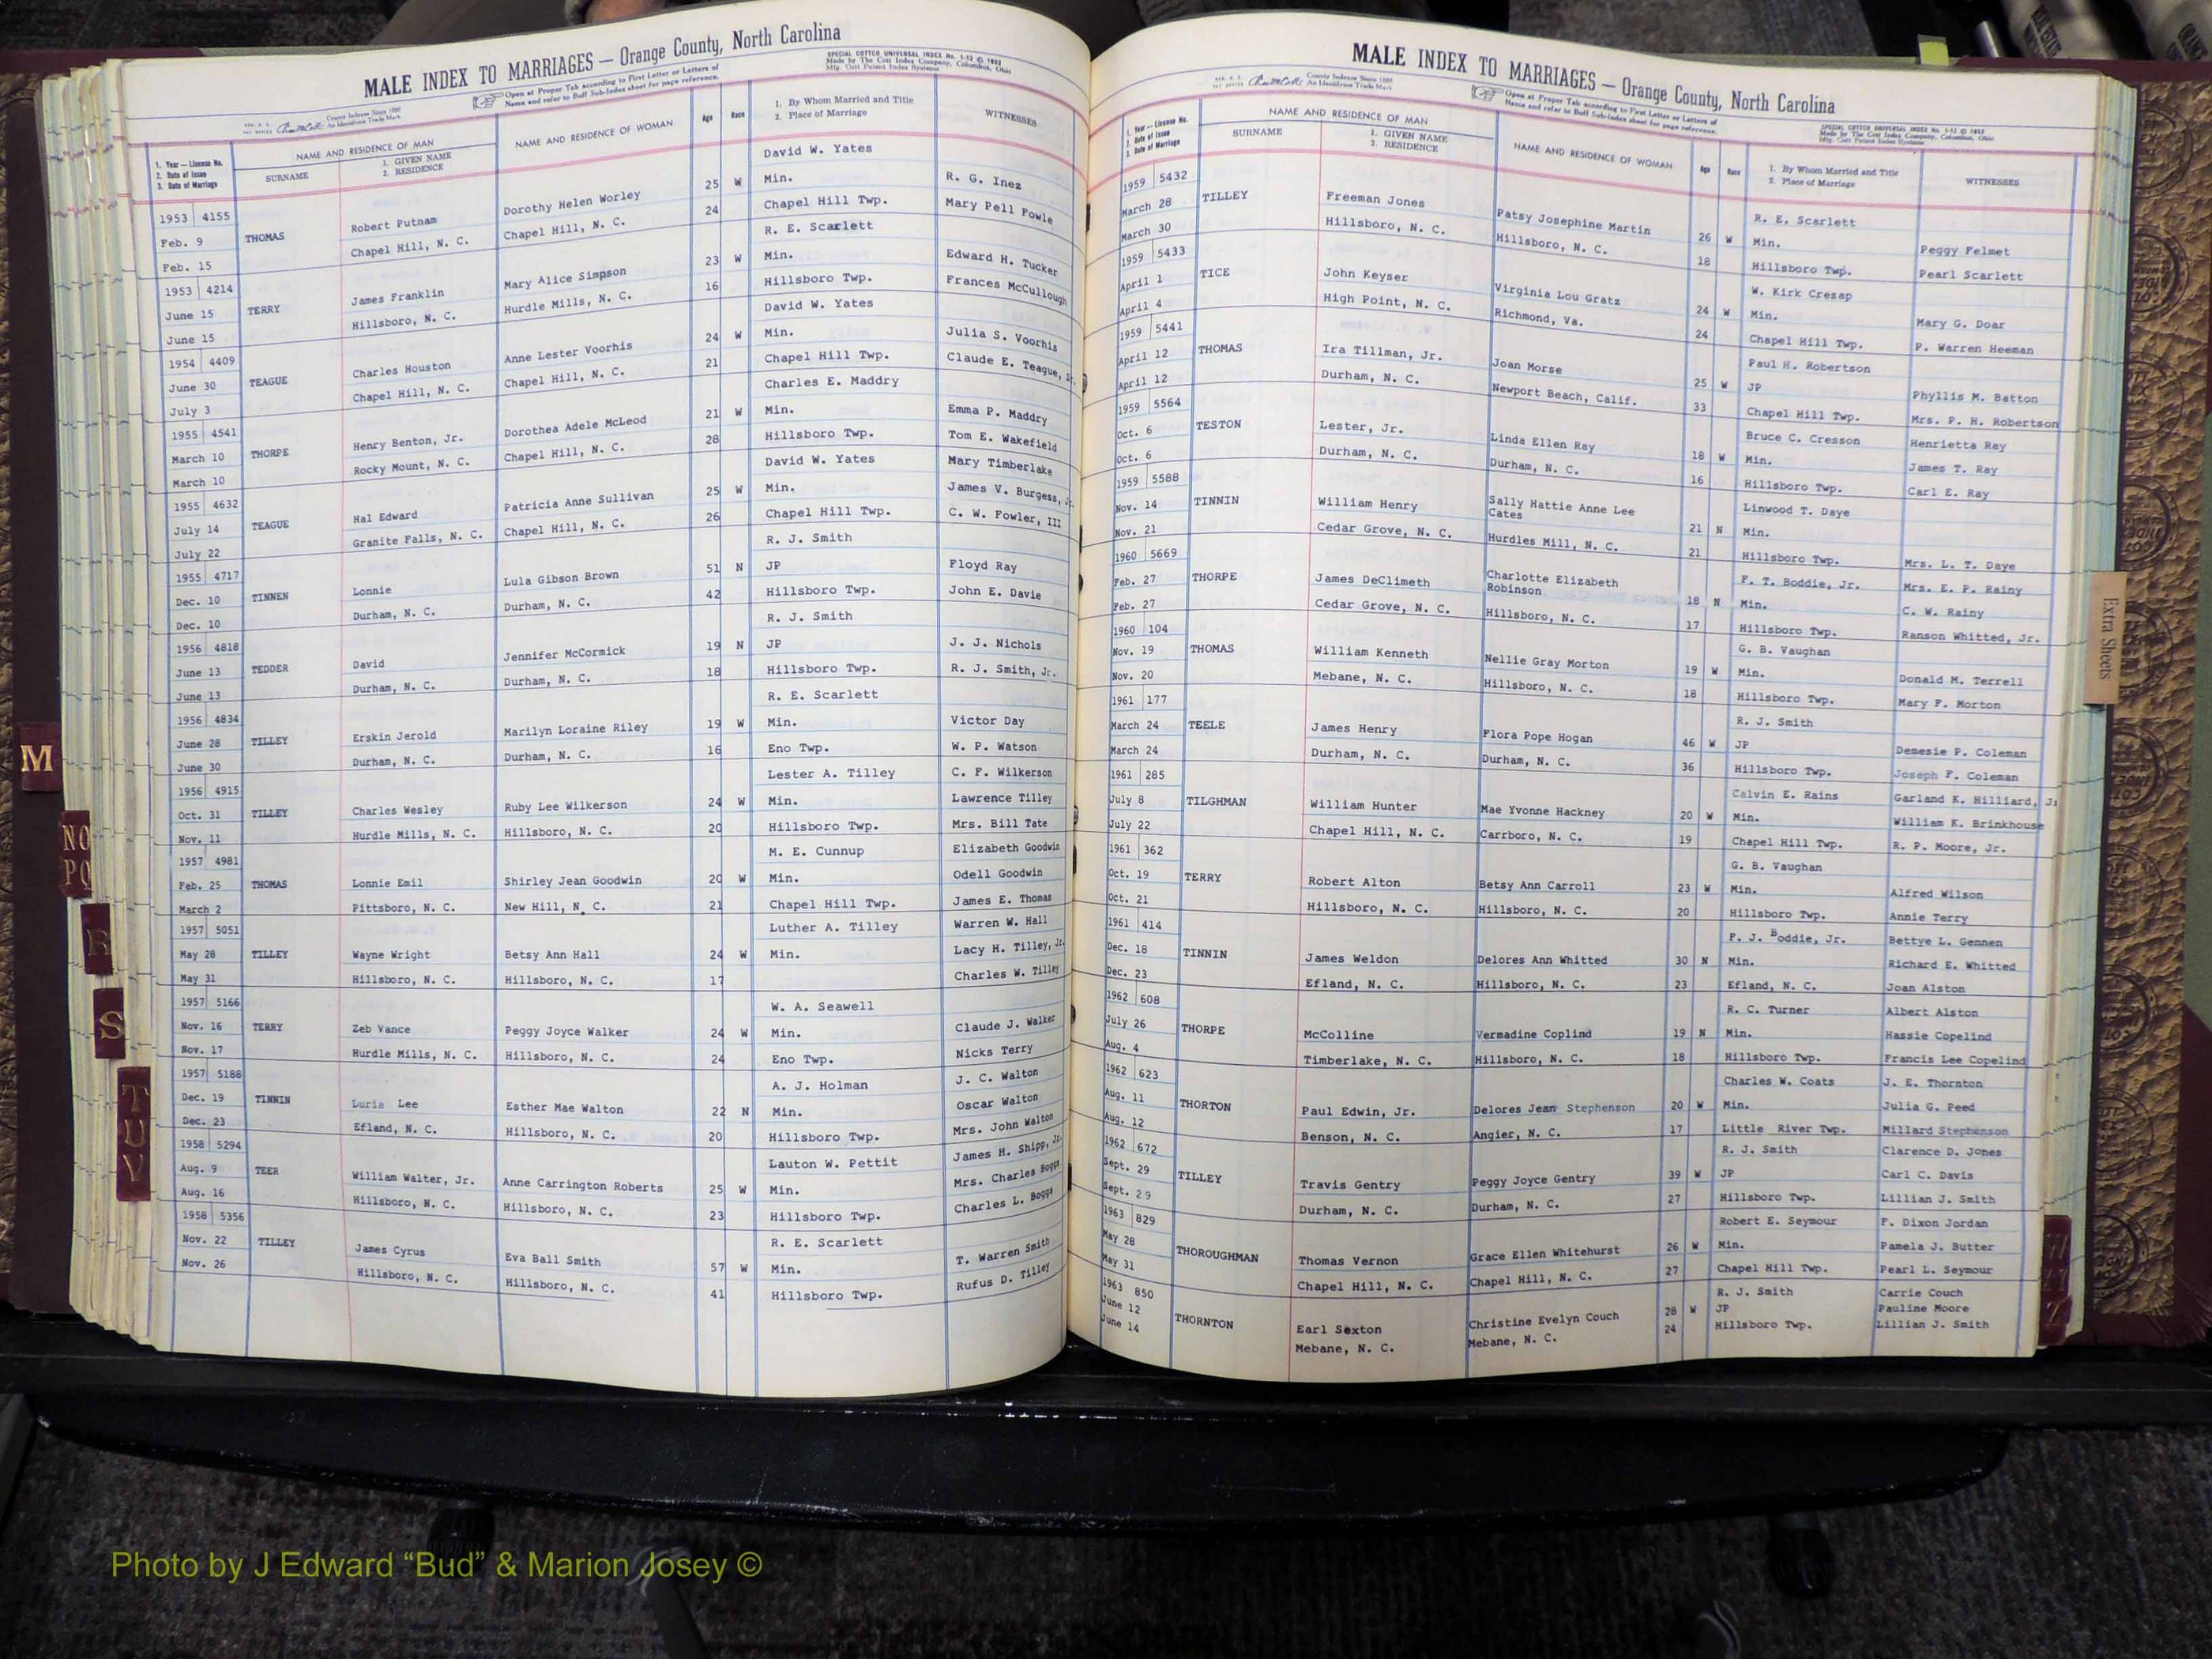 MALE INDEX TO MARRIAGES — Orange County, North Carolina
SPECIAL COTTCO UNIVERSAL INDEX No. 1-12 © 1952
Made by The Cott Index Company, Columbus, Ohio
Mfg. Cott Patent Index Systems
County Indexes Since 1888
An Identifying Trade Mark
Open at Proper Tab according to First Letter or Letters of
Name and refer to Buff Sub-Index sheet for page reference.
1. Year — License No.
2. Date of Issue
3. Date of Marriage
NAME AND RESIDENCE OF MAN
SURNAME
1. GIVEN NAME
2. RESIDENCE
NAME AND RESIDENCE OF WOMAN
Age
Race
1. By Whom Married and Title
2. Place of Marriage
WITNESSES
David W. Yates
1953 4155 25 W Min. R. G. Inez
Feb. 9 THOMAS Robert Putnam Dorothy Helen Worley 24 Chapel Hill Twp. Mary Pell Fowle
Feb. 15 Chapel Hill, N. C. Chapel Hill, N. C.
R. E. Scarlett
1953 4214 23 W Min. Edward H. Tucker
June 15 TERRY James Franklin Mary Alice Simpson 16 Hillsboro Twp. Frances McCullough
June 15 Hillsboro, N. C. Hurdle Mills, N. C.
David W. Yates
1954 4409 24 W Min. Julia S. Voorhis
June 30 TEAGUE Charles Houston Anne Lester Voorhis 21 Chapel Hill Twp. Claude E. Teague, Sr.
July 3 Chapel Hill, N. C. Chapel Hill, N. C.
Charles E. Maddry
1955 4541 21 W Min. Emma P. Maddry
March 10 THORPE Henry Benton, Jr. Dorothea Adele McLeod 28 Hillsboro Twp. Tom E. Wakefield
March 10 Rocky Mount, N. C. Chapel Hill, N. C.
David W. Yates Mary Timberlake
1955 4632 25 W Min. James V. Burgess, Jr.
July 14 TEAGUE Hal Edward Patricia Anne Sullivan 26 Chapel Hill Twp. C. W. Fowler, III
July 22 Granite Falls, N. C. Chapel Hill, N. C.
R. J. Smith
1955 4717 51 N JP Floyd Ray
Dec. 10 TINNEN Lonnie Lula Gibson Brown 42 Hillsboro Twp. John E. Davie
Dec. 10 Durham, N. C. Durham, N. C.
R. J. Smith
1956 4818 19 N JP J. J. Nichols
June 13 TEDDER David Jennifer McCormick 18 Hillsboro Twp. R. J. Smith, Jr.
June 13 Durham, N. C. Durham, N. C.
R. E. Scarlett
1956 4834 19 W Min. Victor Day
June 28 TILLEY Erskin Jerold Marilyn Loraine Riley 16 Eno Twp. W. P. Watson
June 30 Durham, N. C. Durham, N. C.
Lester A. Tilley C. F. Wilkerson
1956 4915 24 W Min. Lawrence Tilley
Oct. 31 TILLEY Charles Wesley Ruby Lee Wilkerson 20 Hillsboro Twp. Mrs. Bill Tate
Nov. 11 Hurdle Mills, N. C. Hillsboro, N. C.
M. E. Cunnup Elizabeth Goodwin
1957 4981 20 W Min. Odell Goodwin
Feb. 25 THOMAS Lonnie Emil Shirley Jean Goodwin 21 Chapel Hill Twp. James E. Thomas
March 2 Pittsboro, N. C. New Hill, N. C.
Luther A. Tilley Warren W. Hall
1957 5051 24 W Min. Lacy H. Tilley, Jr.
May 28 TILLEY Wayne Wright Betsy Ann Hall 17 Charles W. Tilley
May 31 Hillsboro, N. C. Hillsboro, N. C.
W. A. Seawell
1957 5166 24 W Min. Claude J. Walker
Nov. 16 TERRY Zeb Vance Peggy Joyce Walker 24 Eno Twp. Nicks Terry
Nov. 17 Hurdle Mills, N. C. Hillsboro, N. C.
A. J. Holman J. C. Walton
1957 5188 22 N Min. Oscar Walton
Dec. 19 TINNIN Luria Lee Esther Mae Walton 20 Hillsboro Twp. Mrs. John Walton
Dec. 23 Efland, N. C. Hillsboro, N. C.
Lauton W. Pettit James H. Shipp, Jr.
1958 5294 25 W Min. Mrs. Charles Boggs
Aug. 9 TEER William Walter, Jr. Anne Carrington Roberts 23 Hillsboro Twp. Charles L. Boggs
Aug. 16 Hillsboro, N. C. Hillsboro, N. C.
R. E. Scarlett
1958 5356 57 W Min. T. Warren Smith
Nov. 22 TILLEY James Cyrus Eva Ball Smith 41 Hillsboro Twp. Rufus D. Tilley
Nov. 26 Hillsboro, N. C. Hillsboro, N. C.
M
NO
PQ
R
S
T
U
V
MALE INDEX TO MARRIAGES — Orange County, North Carolina
County Indexes Since 1888
An Identifying Trade Mark
Open at Proper Tab according to First Letter or Letters of
Name and refer to Buff Sub-Index sheet for page reference.
SPECIAL COTTCO UNIVERSAL INDEX No. 1-12 © 1952
Made by The Cott Index Company, Columbus, Ohio
Mfg. Cott Patent Index Systems
1. Year — License No.
2. Date of Issue
3. Date of Marriage
NAME AND RESIDENCE OF MAN
SURNAME
1. GIVEN NAME
2. RESIDENCE
NAME AND RESIDENCE OF WOMAN
Age
Race
1. By Whom Married and Title
2. Place of Marriage
WITNESSES
1959 5432 R. E. Scarlett
March 28 TILLEY Freeman Jones Patsy Josephine Martin 26 W Min. Peggy Felmet
March 30 Hillsboro, N. C. Hillsboro, N. C. 18 Hillsboro Twp. Pearl Scarlett
1959 5433 W. Kirk Cresap
April 1 TICE John Keyser Virginia Lou Gratz 24 W Min. Mary G. Doar
April 4 High Point, N. C. Richmond, Va. 24 Chapel Hill Twp. P. Warren Heeman
1959 5441 Paul H. Robertson
April 12 THOMAS Ira Tillman, Jr. Joan Morse 25 W JP Phyllis M. Batton
April 12 Durham, N. C. Newport Beach, Calif. 33 Chapel Hill Twp. Mrs. P. H. Robertson
1959 5564 Bruce C. Cresson Henrietta Ray
Oct. 6 TESTON Lester, Jr. Linda Ellen Ray 18 W Min. James T. Ray
Oct. 6 Durham, N. C. Durham, N. C. 16 Hillsboro Twp. Carl E. Ray
1959 5588 Linwood T. Daye
Nov. 14 TINNIN William Henry Sally Hattie Anne Lee Cates 21 N Min.
Nov. 21 Cedar Grove, N. C. Hurdles Mill, N. C. 21 Hillsboro Twp. Mrs. L. T. Daye
1960 5669 F. T. Boddie, Jr. Mrs. E. P. Rainy
Feb. 27 THORPE James DeClimeth Charlotte Elizabeth Robinson 18 N Min. C. W. Rainy
Feb. 27 Cedar Grove, N. C. Hillsboro, N. C. 17 Hillsboro Twp. Ranson Whitted, Jr.
1960 104 G. B. Vaughan
Nov. 19 THOMAS William Kenneth Nellie Gray Morton 19 W Min. Donald M. Terrell
Nov. 20 Mebane, N. C. Hillsboro, N. C. 18 Hillsboro Twp. Mary F. Morton
1961 177 R. J. Smith
March 24 TEELE James Henry Flora Pope Hogan 46 W JP Demesie P. Coleman
March 24 Durham, N. C. Durham, N. C. 36 Hillsboro Twp. Joseph F. Coleman
1961 285 Calvin E. Rains Garland K. Hilliard, J
July 8 TILGHMAN William Hunter Mae Yvonne Hackney 20 W Min. William K. Brinkhouse
July 22 Chapel Hill, N. C. Carrboro, N. C. 19 Chapel Hill Twp. R. P. Moore, Jr.
1961 362 G. B. Vaughan
Oct. 19 TERRY Robert Alton Betsy Ann Carroll 23 W Min. Alfred Wilson
Oct. 21 Hillsboro, N. C. Hillsboro, N. C. 20 Hillsboro Twp. Annie Terry
1961 414 F. J. Boddie, Jr. Bettye L. Gennen
Dec. 18 TINNIN James Weldon Delores Ann Whitted 30 N Min. Richard E. Whitted
Dec. 23 Efland, N. C. Hillsboro, N. C. 23 Efland, N. C. Joan Alston
1962 608 R. C. Turner Albert Alston
July 26 THORPE McColline Vermadine Coplind 19 N Min. Hassie Copelind
Aug. 4 Timberlake, N. C. Hillsboro, N. C. 18 Hillsboro Twp. Francis Lee Copelind
1962 623 Charles W. Coats J. E. Thornton
Aug. 11 THORTON Paul Edwin, Jr. Delores Jean Stephenson 20 W Min. Julia G. Peed
Aug. 12 Benson, N. C. Angier, N. C. 17 Little River Twp. Millard Stephenson
1962 672 R. J. Smith Clarence D. Jones
Sept. 29 TILLEY Travis Gentry Peggy Joyce Gentry 39 W JP Carl C. Davis
Sept. 29 Durham, N. C. Durham, N. C. 27 Hillsboro Twp. Lillian J. Smith
1963 829 Robert E. Seymour F. Dixon Jordan
May 28 THOROUGHMAN Thomas Vernon Grace Ellen Whitehurst 26 W Min. Pamela J. Butter
May 31 Chapel Hill, N. C. Chapel Hill, N. C. 27 Chapel Hill Twp. Pearl L. Seymour
1963 850 R. J. Smith Carrie Couch
June 12 THORNTON Earl Sexton Christine Evelyn Couch 28 W JP Pauline Moore
June 14 Mebane, N. C. Mebane, N. C. 24 Hillsboro Twp. Lillian J. Smith
Extra Sheets
Photo by J Edward “Bud” & Marion Josey ©